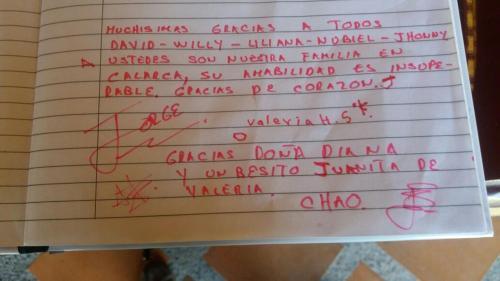 MUCHISIMAS GRACIAS A TODOS
DAVID-WILLY-LILIANA-NUBIEL-JHONNY
USTEDES SON NUESTRA FAMILIA EN
CALARCA, SU AMABILIDAD ES INSUPE-
RABLE. GRACIAS DE CORAZON.
JORGE
Valeria H.S
GRACIAS DOÑA DIANA
Y UN BESITO JUANITA DE
VALERIA.
CHAO.